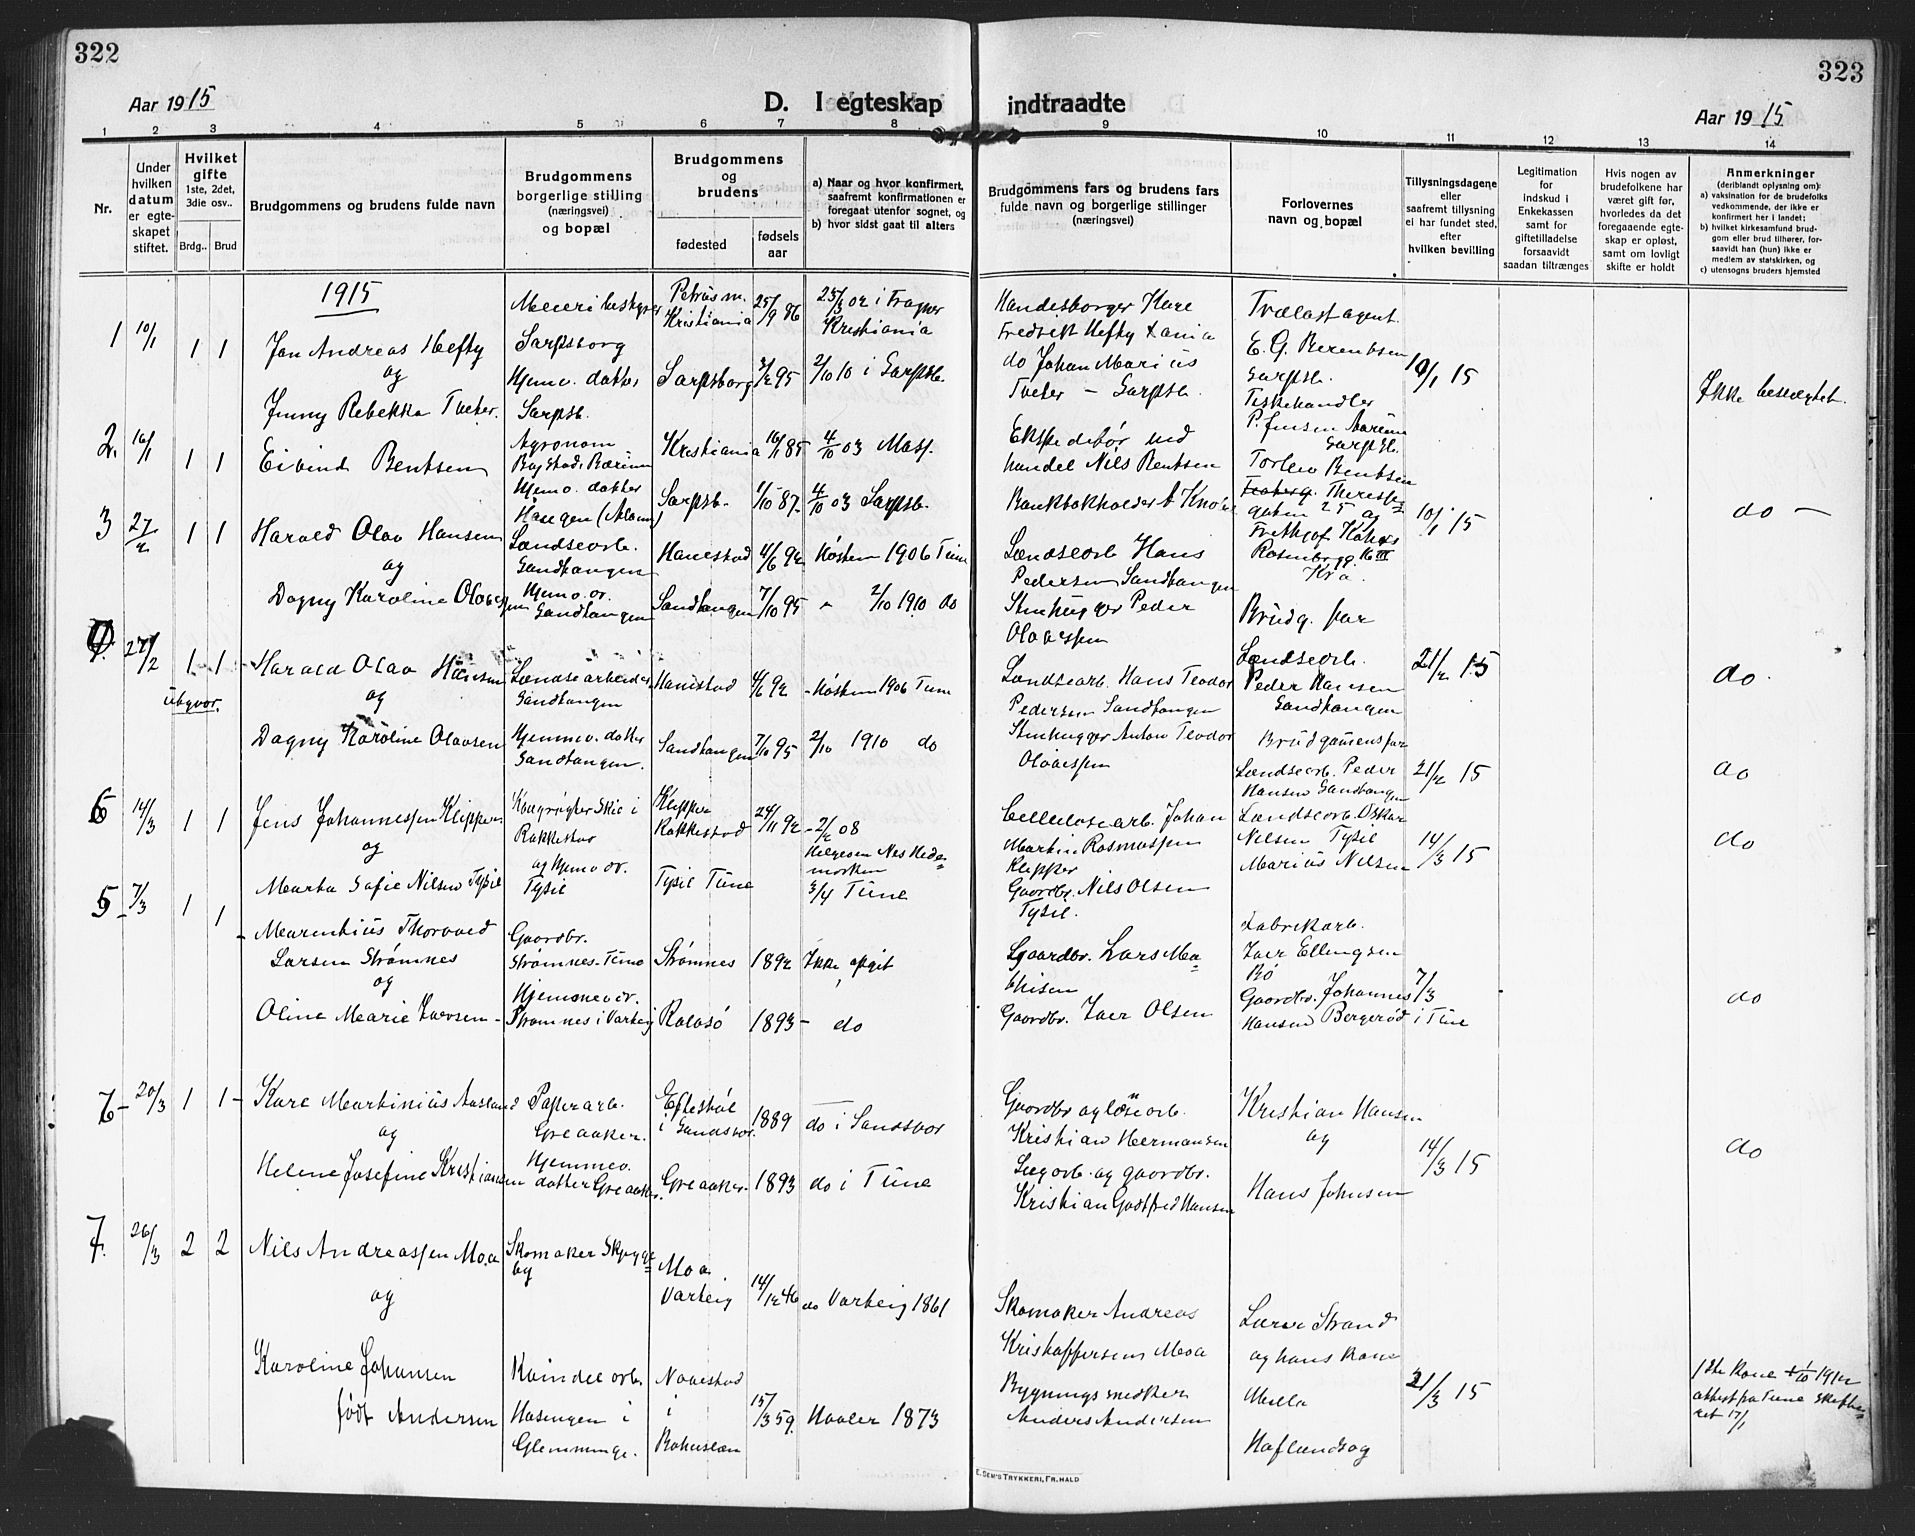 322
323
Aar 1915
D. I egteskap
indtraadte
Aar 1915
1 2 3 4 5 6 7 8 9 10 11 12 13 14
Nr.
Under hvilken datum er egteskapet stiftet.
Hvilket gifte
1ste, 2det, 3die osv..
Brdg..
Brud
Brudgommens og brudens fulde navn
Brudgommens borgerlige stilling (næringsvei) og bopæl
Brudgommens og brudens
fødested
fødsels aar
a) Naar og hvor konfirmert, saafremt konfirmationen er foregaat utenfor sognet, og
b) hvor sidst gaat til alters
Brudgommens fars og brudens fars fulde navn og borgerlige stillinger (næringsvei)
Forlovernes navn og bopæl
Tillysningsdagene eller saafremt tillysning ei har fundet sted, efter hvilken bevilling
Legitimation for indskud i Enkekassen samt for giftetilladelse forsaavidt saadan tiltrænges
Hvis nogen av brudefolkene har været gift før, hvorledes da det foregaaende egteskap er opløst, samt om lovligt skifte er holdt
Anmerkninger (deriblandt oplysning om):
a) vaksination for de brudefolks vedkommende, der ikke er konfirmert her i landet;
b) hvilket kirkesamfund brudgom eller brud tilhører, forsaavidt han (hun) ikke er medlem av statskirken, og
c) utensogns bruders hjemsted
1915
1 10/1 1 1
Jan Andreas Hefty
og
Jenny Rebekka Tveter.
Sarpsborg
Hjemv. datter
Sarpsb.
Petrus m.
Kristiania 25/9 86
Sarpsborg 3/2 95
25/9 02 i Frogner
Kristiania
2/10 10 i Sarpsb.
Handelsborger Kare
Fredrik Hefty
do Johan Marius
Tveter - Sarpsb.
Trælastagent
E. G. Berentsen
Sarpsb.
Fiskehandler
P. Jensen
Sarpsb.
10/1 15
Ikke beslegtet.
2. 16/1 1 1
Eivind Bentsen
Agronom
Hjemv. datter
Kristiania 16/1 85
Sarpsb. 1/10 87.
4/10 03 Moss.
4/10 03 Sarpsb.
Ekspeditør ved
handel Nils Bentsen
Torleiv Bentsen
Theresesgaten 25 og
Frithjof
Rosenborgg. 16 III
Kra.
10/1 15
do -
3 27/2 1 1
Harald Olav Hansen
og
Dagny Karoline Olavesen
Lændsearb.
Sandtangen
Hjemv. dr.
Sandtangen
Hanestad 4/6 92
Sandtangen 7/10 95
Høsten 1906 Tune
" 2/10 1910 do
Lændsearb Hans
Pedersen Sandtangen
Stenhugger Peder
Olavessen
Brudg. far
4. 27/2 1 1 -
utgaar.
Harald Olav Hansen
og
Dagny Karoline Olavsen
Lændsearbeider
Sandtangen
Hjemmev. datter
Sandtangen.
Hanestad 4/6 92
Sandtangen 7/10 95
- Høsten 1906 Tune
2/10 1910 do
Lændsearb. Hans Teodor
Pedersen Sandtangen
Stenhugger Anton Teodor
Olavessen
Lændsearb.
Peder Hansen
Sandtangen
Brudgomens far
Lændsearb. Peder
Hansen Sandtangen
21/2 15
21/2 15
do.
do
6 14/3 1 1
Jens Johannessen Klepper
og
Marta Sofie Nilsen Tysil
Rakkestad
og Hjemv. dr.
Tysil
Klepper
Rakkestad 24/11 92
Tysil Tune
- 2/2 08
Helgesen Nes Hedemarken
3/4 Tune
Cellulosearb. Johan
Martin Rasmussen
Klepper
Gaardbr. Nils Olsen
Tysil.
Lændsearb. Oskar
Nilsen Tysil
Marius Nilsen
14/3 15
do
5 7/3 1 1
Marentius Thorvald
Larsen Strømnes
og
Oline Marie Iversen -
Gaardbr.
Strømnes. Tune
Hjemmev. dr.
Strømnes i Varteig
Strømnes 1892
Rolvsö 1893 -
Ikke opgit
do
Gaardbr. Lars Mathisen
Gaardbr. Iver Olsen
Fabrikarb.
Iver Ellingsen
Bö
Gaardbr. Johannes
Hansen Bergerød i Tune
7/3
do
6 - 20/3 1 1 -
Kare Martinius Aasland
og
Helene Josefine Kristiansen
Papirarb.
Greaaker.
Hjemmev.
datter Greaaker
i Sandsvær. 1889
Greaaker. 1893
do i Sandsvær
do i Tune
Gaardbr og løsearb.
Kristian Hermansen
Sagarb. og gaardbr.
Kristian Godtfred Hansen
Kristian Hansen
og
Hans Johnsen
14/3 15
do
7. 26/3 2 2
Nils Andreassen Moa
og
Karoline Johansen
født Andersen
Skomaker Skyggeby
Kvindel. arb.
Hasengen i
Glemminge.
Moa
Varteig 14/12 46
Naaestad
i
Bohuslæn 15/3 59.
do Varteig 1861
Haaler 1873
Skomaker Andreas
Kristoffersen Moa
Bygnings snedker
Anders Andersen
Lærer Strand
og hans kone
Milla
Haflundsøg
21/3 15
1ste kone + 1/10 1912
attest fra Tune skifteret 17/1
E. SEM'S TRYKKERI, FR.HALD